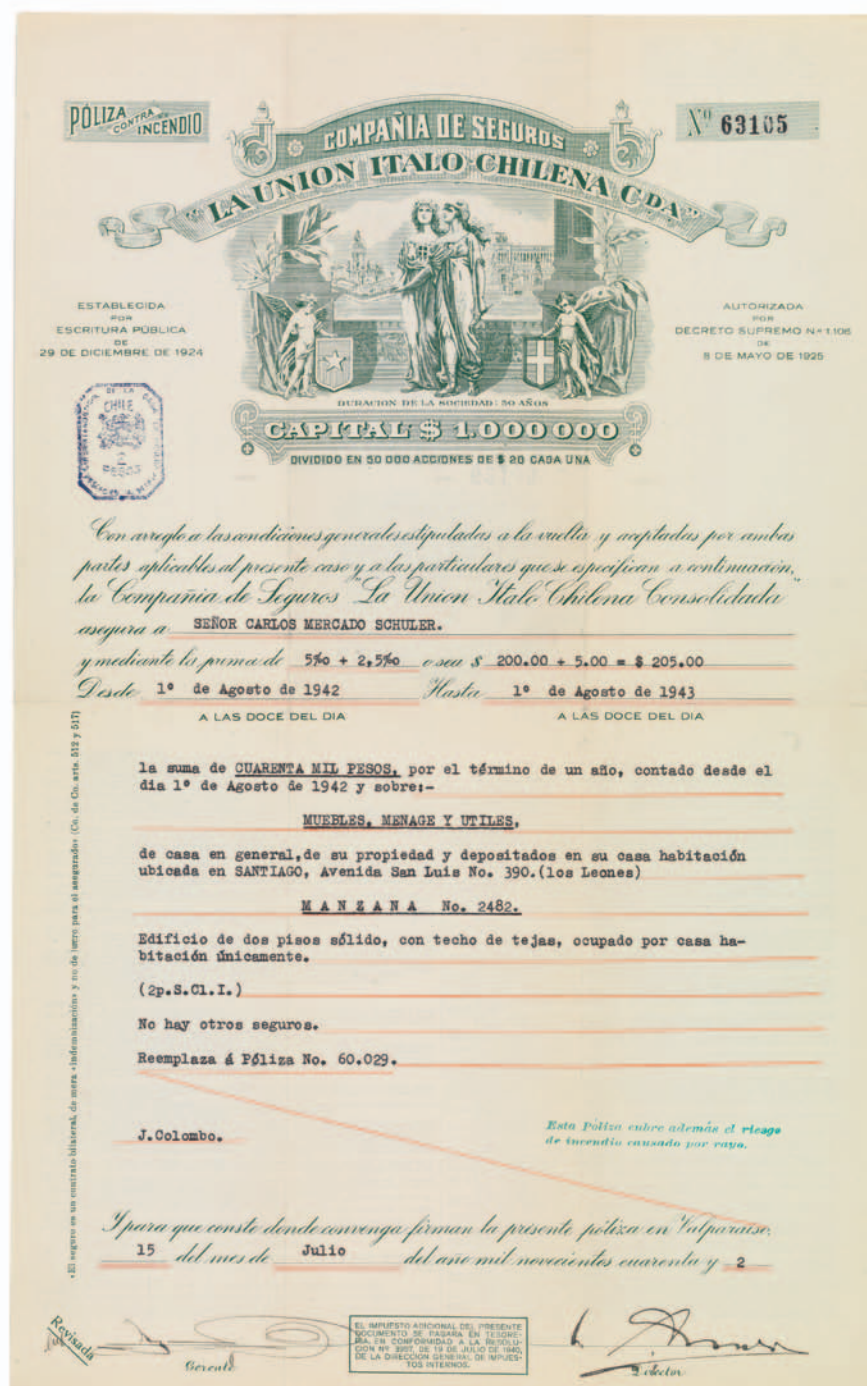 PÓLIZA CONTRA INCENDIO
Nº 63105
COMPAÑIA DE SEGUROS
"LA UNION ITALO CHILENA CDA"
ESTABLECIDA
POR
ESCRITURA PÚBLICA
DE
29 DE DICIEMBRE DE 1924
AUTORIZADA
POR
DECRETO SUPREMO Nº 1.106
DE
8 DE MAYO DE 1925
CHILE
2
PESOS
DURACION DE LA SOCIEDAD: 50 AÑOS
CAPITAL $ 1.000 000
DIVIDIDO EN 50 000 ACCIONES DE $ 20 CADA UNA
Con arreglo a las condiciones generales estipuladas a la vuelta y aceptadas por ambas
partes aplicables al presente caso y a las particulares que se especifican a continuación,
la Compañia de Seguros "La Union Italo Chilena Consolidada"
asegura a SEÑOR CARLOS MERCADO SCHULER.
y mediante la prima de 5‰ + 2,5‰ o sea $ 200.00 + 5.00 = $ 205.00
Desde 1º de Agosto de 1942 Hasta 1º de Agosto de 1943
A LAS DOCE DEL DIA A LAS DOCE DEL DIA
«El seguro es un contrato bilateral, de mera «indemnización» y no de lucro para el asegurado» (Co. de Co. arts. 512 y 517)
la suma de CUARENTA MIL PESOS, por el término de un año, contado desde el
dia 1º de Agosto de 1942 y sobre:-
MUEBLES, MENAGE Y UTILES,
de casa en general,de su propiedad y depositados en su casa habitación
ubicada en SANTIAGO, Avenida San Luis No. 390.(los Leones)
M A N Z A N A No. 2482.
Edificio de dos pisos sólido, con techo de tejas, ocupado por casa ha-
bitación únicamente.
(2p.S.Cl.I.)
No hay otros seguros.
Reemplaza á Póliza No. 60.029.
J.Colombo.
Esta Póliza cubre además el riesgo
de incendio causado por rayo.
Y para que conste donde convenga firman la presente póliza en Valparaiso,
15 del mes de Julio del año mil novecientos cuarenta y 2
Revisada
Gerente
EL IMPUESTO ADICIONAL DEL PRESENTE
DOCUMENTO SE PAGARA EN TESORE-
RIA, EN CONFORMIDAD A LA RESOLU-
CION Nº 3957, DE 19 DE JULIO DE 1940,
DE LA DIRECCION GENERAL DE IMPUES-
TOS INTERNOS.
Director